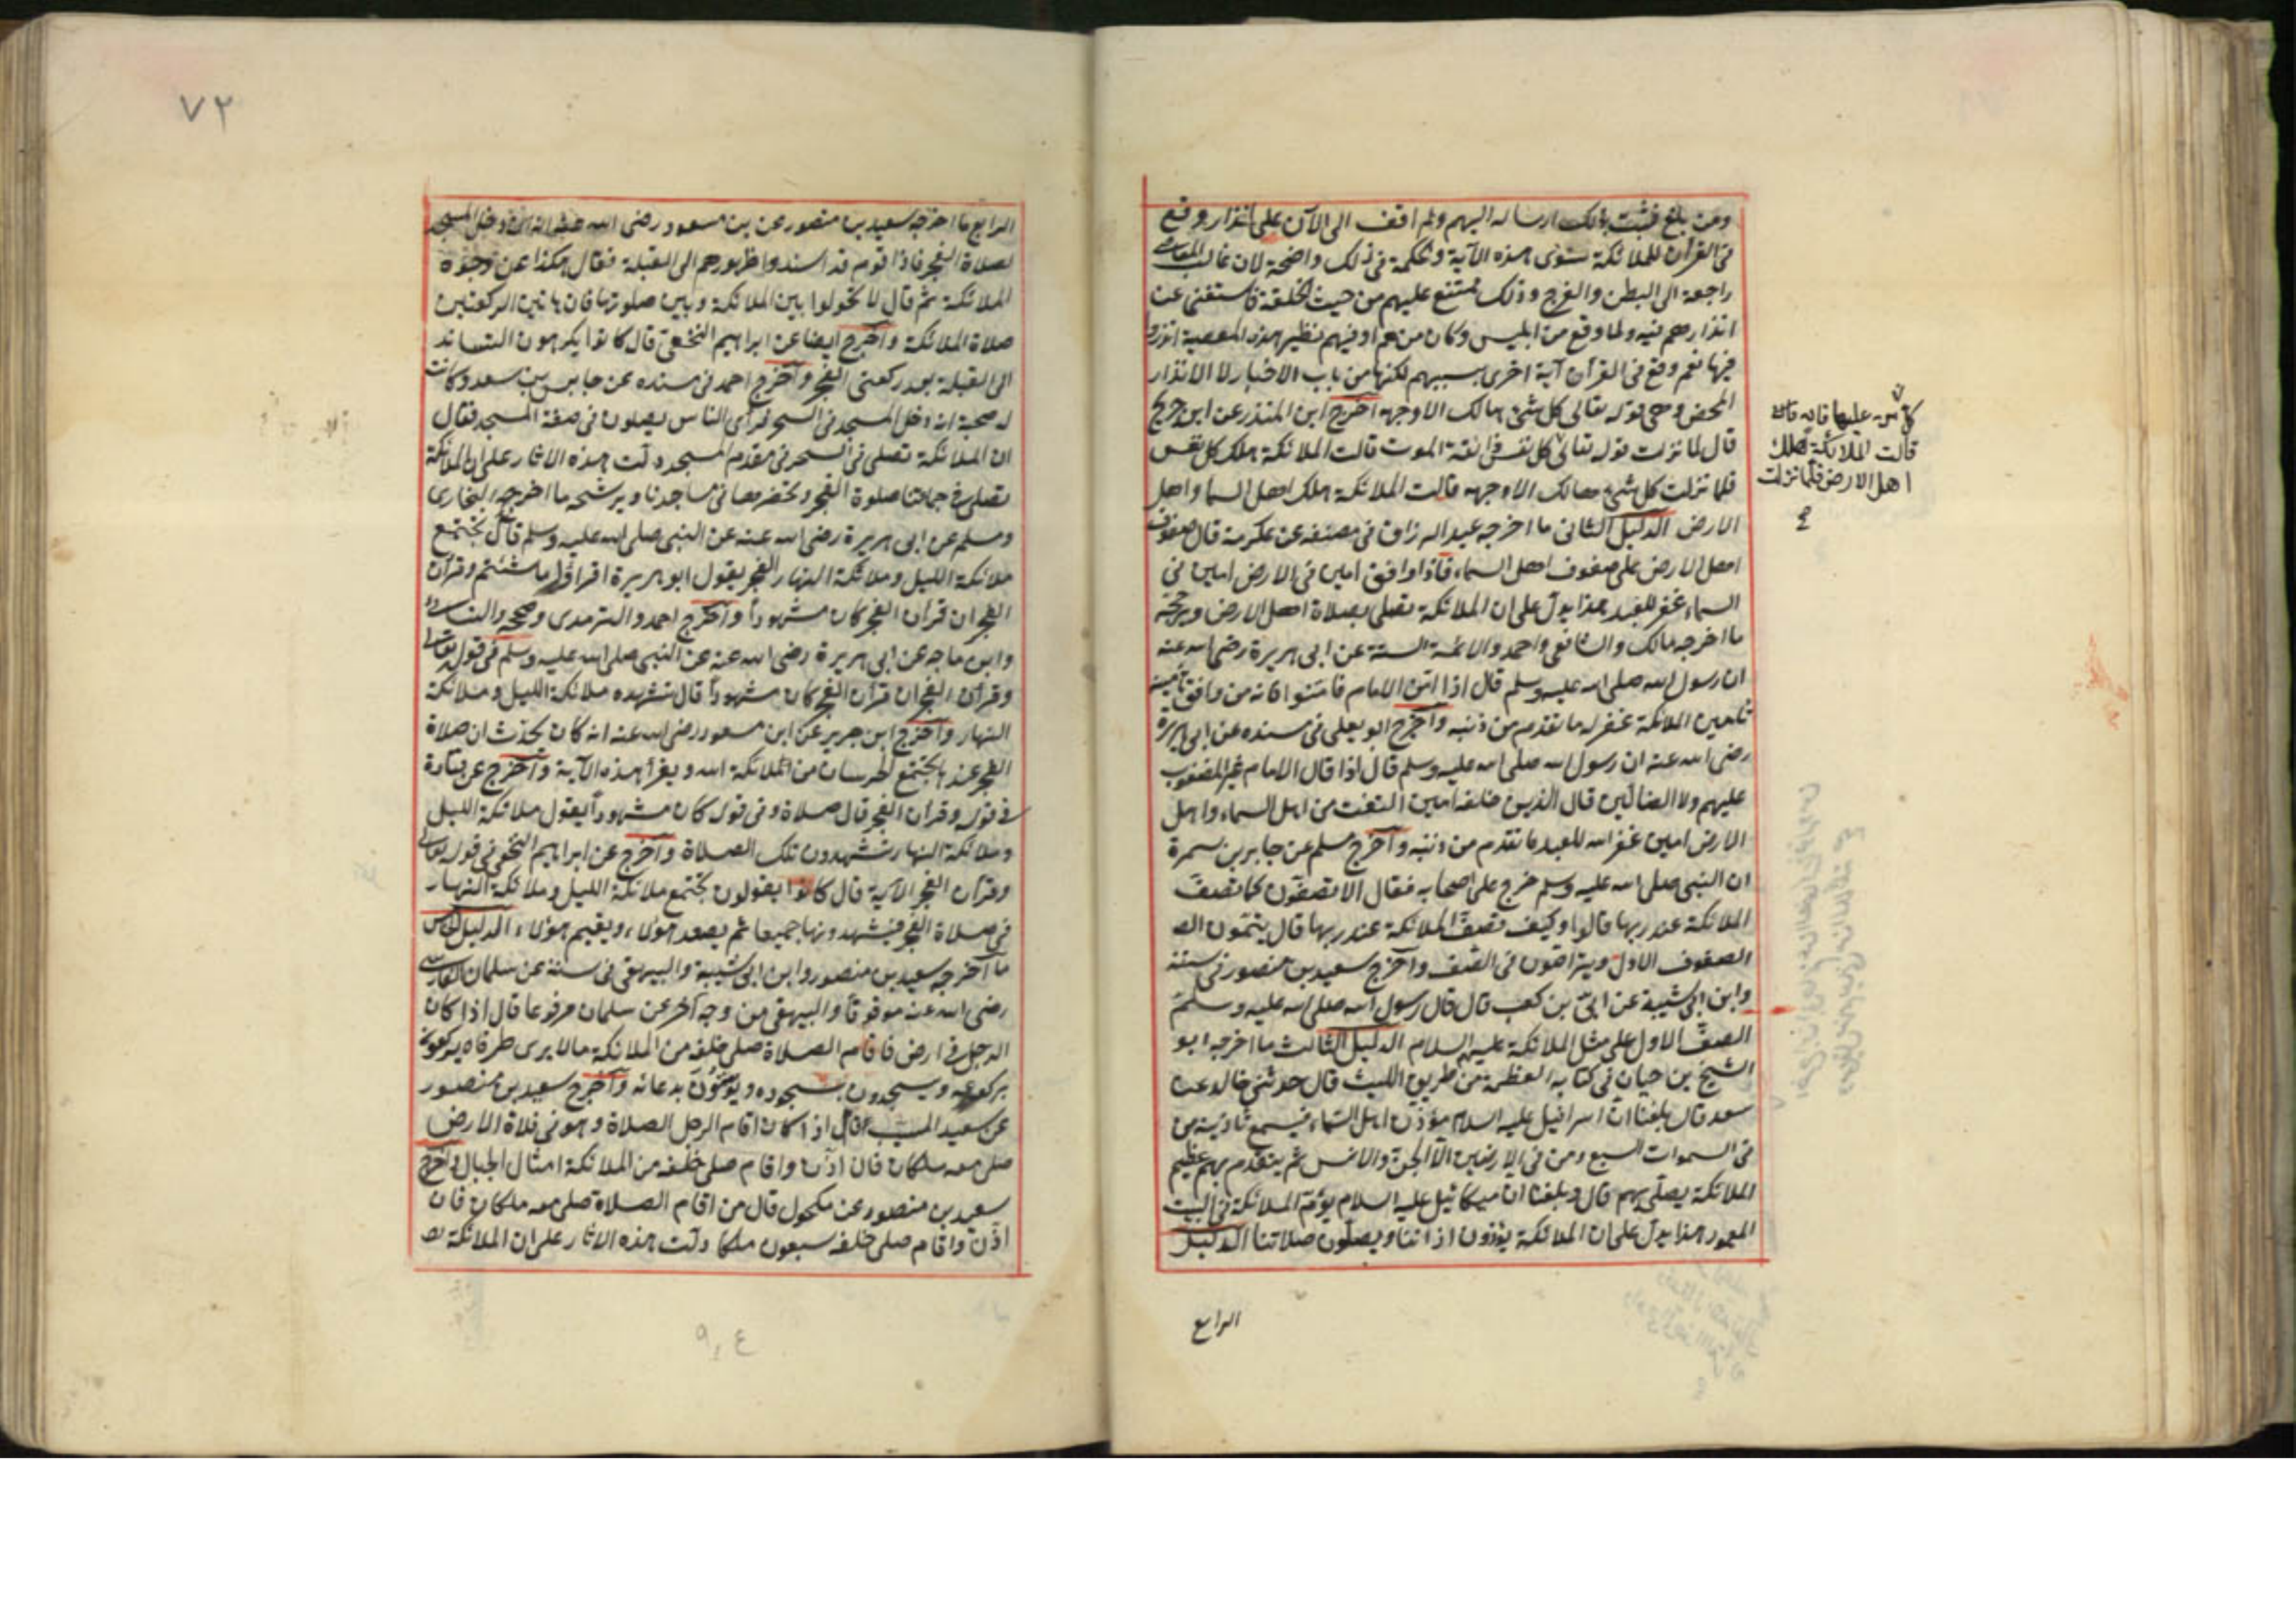 ومن بلغ فثبت بذلك ارساله اليهم ولم اقف الى الآن على انذار وقع
فى القرآن للملائكة سوى هذه الآية والحكمة فى ذلك واضحة لان غالب المعاصى
راجعة الى البطن والفرج وذلك ممتنع عليهم من حيث الخلقة فاستغنى عن
انذارهم فيه ولما وقع من ابليس وكان منهم او فيهم نظير هذه المعصية انذروا
فيها نعم وقع فى القرآن آية اخرى بسببهم لكنها من باب الاخبار لا الانذار
المحض وهى قوله تعالى كل شئ هالك الا وجهه اخرج ابن المنذر عن ابن جريج
قال لما نزلت قوله تعالى كل نفس ذائقة الموت قالت الملائكة هلك كل نفس
فلما نزلت كل شئ هالك الا وجهه قالت الملائكة هلك اهل السما واهل
الارض الدليل الثانى ما اخرجه عبد الرزاق فى مصنفه عن عكرمة قال صفوف
اهل الارض على صفوف اهل السماء فاذا وافق امين فى الارض امين فى
السماء غفر للعبد هذا يدل على ان الملائكة تصلى بصلاة اهل الارض ويرشحه
ما اخرجه مالك والشافعى واحمد والائمة الستة عن ابى هريرة رضى الله عنه
ان رسول الله صلى الله عليه وسلم قال اذا امّن الامام فامّنوا فانه من وافق تأمينه
تامين الملائكة غفر له ما تقدم من ذنبه واخرج ابو يعلى فى مسنده عن ابى هريرة
رضى الله عنه ان رسول الله صلى الله عليه وسلم قال اذا قال الامام غير المغضوب
عليهم ولا الضالين قال الذين خلفه امين التقت من اهل السماء واهل
الارض امين غفر الله للعبد ما تقدم من ذنبه واخرج مسلم عن جابر بن سمرة
ان النبى صلى الله عليه وسلم خرج على اصحابه فقال الا تصفون كما تصف
الملائكة عند ربها قالوا وكيف تصف الملائكة عند ربها قال يتمون الصـ
الصفوف الاول ويتراصون فى الصف واخرج سعيد بن منصور فى سننه
وابن ابى شيبة عن ابىّ بن كعب قال قال رسول الله صلى الله عليه وسلم
الصف الاول على مثل الملائكة عليهم السلام الدليل الثالث ما اخرجه ابو
الشيخ بن حيان فى كتابه العظمة من طريق الليث قال حدثنى خالد عن
سعد قال بلغنا ان اسرافيل عليه السلام مؤذن اهل السماء فيسمع تاذينه من
فى السموات السبع ومن فى الارضين الا الجن والانس ثم يتقدم بهم عظيم
الملائكة يصلى بهم قال وبلغنا ان ميكائيل عليه السلام يؤم الملائكة فى البيت
المعمور هذا يدل على ان الملائكة يؤذنون اذاننا ويصلون صلاتنا الدليل
الرابع
كل من عليها فان
قالت الملائكة هلك
اهل الارض فلما نزلت
٧٢
الرابع ما اخرجه سعيد بن منصور عن بن مسعود رضى الله عنه انه دخل المسجد
لصلاة الفجر فاذا قوم قد اسندوا ظهورهم الى القبلة فقال هكذا عن وجوه
الملائكة ثم قال لا تحولوا بين الملائكة وبين صلوتها فان هاتين الركعتين
صلاة الملائكة واخرج ايضا عن ابراهيم النخعى قال كانوا يكرهون التساند
الى القبلة بعد ركعتى الفجر واخرج احمد فى مسنده عن حابس بن سعد وكانت
له صحبة انه دخل المسجد فى السحر فرأى الناس يصلون فى صفة المسجد فقال
ان الملائكة تصلى فى السحر فى مقدم المسجد دلت هذه الاثار على ان الملائكة
تصلى فى جماعتنا صلوة الفجر وتحضر معنا فى مساجدنا ويرشحه ما اخرجه البخارى
ومسلم عن ابى هريرة رضى الله عنه عن النبى صلى الله عليه وسلم قال تجتمع
ملائكة الليل وملائكة النهار الفجر يقول ابو هريرة اقراؤا ما شئتم وقرآن
الفجر ان قرآن الفجر كان مشهوداً واخرج احمد والترمدى وصححه والنسائى
وابن ماجه عن ابى هريرة رضى الله عنه عن النبى صلى الله عليه وسلم فى قوله تعالى
وقرآن الفجر ان قرآن الفجر كان مشهوداً قال تشهده ملائكة الليل وملائكة
النهار واخرج ابن جرير عن ابن مسعود رضى الله عنه انه كان يحدث ان صلاة
الفجر عندها يجتمع الحرسان من الملائكة الله ويقرأ هذه الآية واخرج عن قتادة
فى قوله وقرآن الفجر قال صلاة وفى قوله كان مشهوداً يقول ملائكة الليل
وملائكة النهار تشهدون تلك الصلاة واخرج عن ابراهيم النخعى فى قوله تعالى
وقرآن الفجر الآية قال كانوا يقولون تجتمع ملائكة الليل وملائكة النهار
فى صلاة الفجر فيشهدونها جميعا ثم يصعد هؤلاء ويقيم هؤلاء الدليل الخامس
ما اخرجه سعيد بن منصور وابن ابى شيبة والبيهقى فى سننه عن سلمان الفارسى
رضى الله عنه موقوفاً والبيهقى من وجه آخر عن سلمان مرفوعا قال اذا كان
الرجل فى ارض فاقام الصلاة صلى خلفه من الملائكة ما لا يرى طرفاه يركعون
بركوعه ويسجدون بسجوده ويؤمنون بدعائه واخرج سعيد بن منصور
عن سعيد المسيب قال اذا كان اقام الرجل الصلاة وهو فى فلاة الارض
صلى معه ملكان فان اذن واقام صلى خلفه من الملائكة امثال الجبال واخرج
سعيد بن منصور عن مكحول قال من اقام الصلاة صلى معه ملكان فان
اذن واقام صلى خلفه سبعون ملكا دلت هذه الاثار على ان الملائكة تصـ